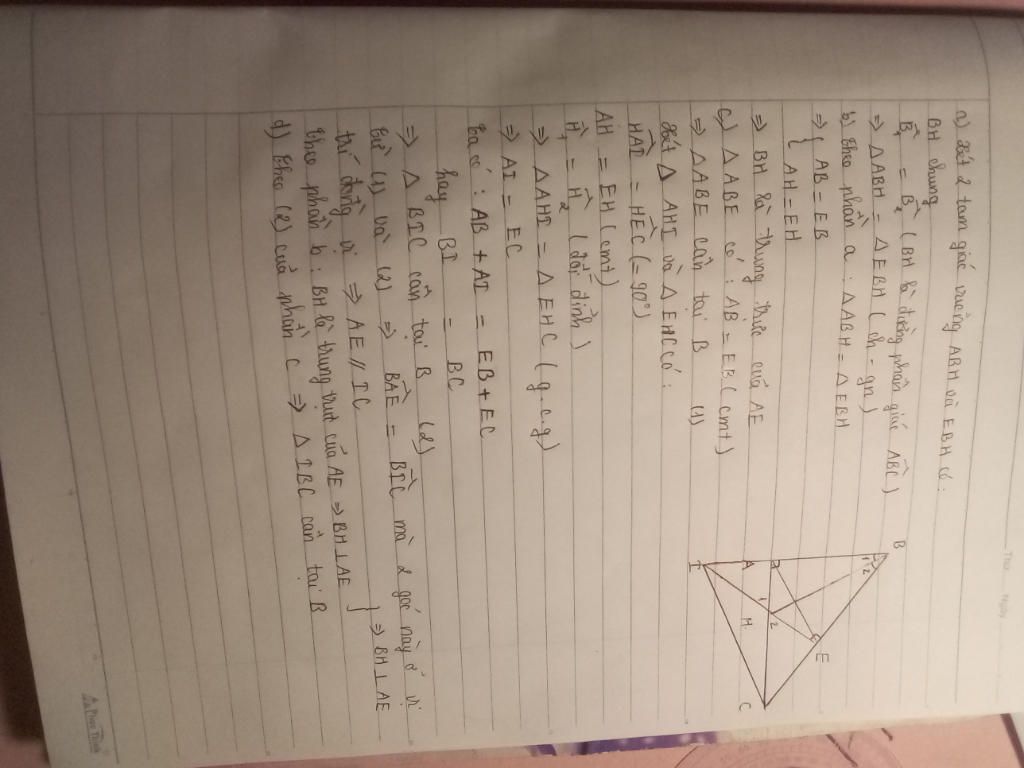 Thứ Ngày
a) Xét 2 tam giác vuông ABH và EBH có:
BH chung
B̂₁ = B̂₂ (BH là đường phân giác ABC)
=> Δ ABH = Δ EBH (ch - gn)
b) Theo phần a : Δ ABH = Δ EBH
=> { AB = EB
AH = EH
=> BH là trung trực của AE
c) Δ ABE có : AB = EB (cmt)
=> Δ ABE cân tại B (1)
Xét Δ AHI và Δ EHC có :
HAI = HEC (= 90°)
AH = EH (cmt)
Ĥ₁ = Ĥ₂ (đối đỉnh)
=> Δ AHI = Δ EHC (g.c.g)
=> AI = EC
Ta có : AB + AI = EB + EC
hay BI = BC
=> Δ BIC cân tại B (2)
Từ (1) và (2) => BAE = BIC mà 2 góc này ở vị
trí đồng vị => AE // IC
Theo phần b : BH là trung trực của AE => BH ⊥ AE } => BH ⊥ AE
d) Theo (2) của phần c => Δ IBC cân tại B
B
1 2
E
A
1
2
H
I
C